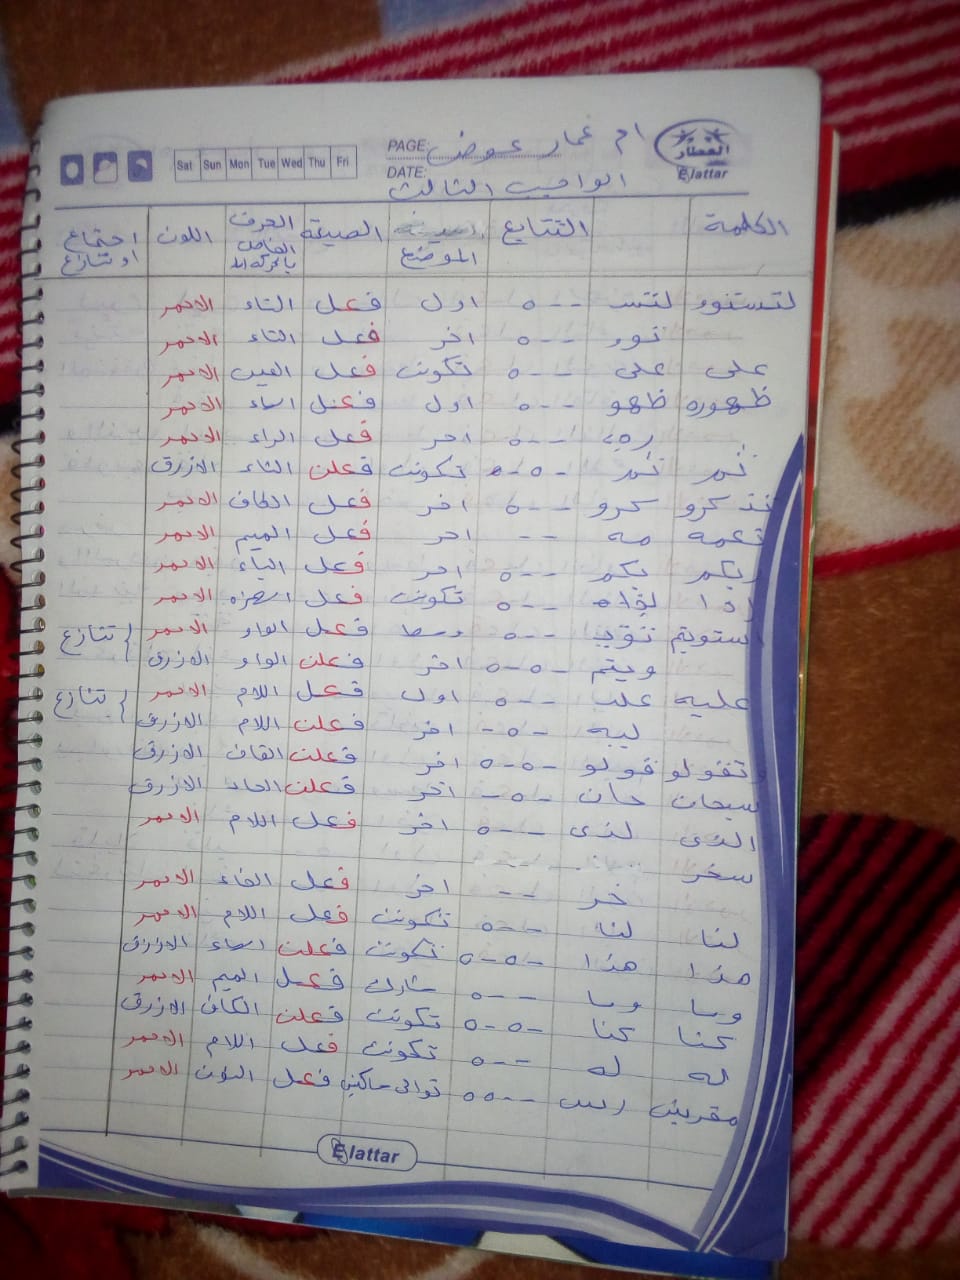 العطار
Elattar
PAGE: ام عمار عوض
DATE: الواجب الثالث
Sat Sun Mon Tue Wed Thu Fri
الكلمة التتابع الموضع الصيغة الحرف الخاص بالحركة اللون اجتماع او تنازع
لتستوو لتتس - - - ٥ اول فعل التاء الاحمر
توو - - - ٥ اخر فعل التاء الاحمر
على على - - - ٥ تكونت فعل العين الاحمر
ظهوره ظهو - - - ٥ اول فعل الهاء الاحمر
- - - ٥ اخر فعل الراء الاحمر
ثم ثم - ٥ - ٥ تكونت فعلن الثاء الازرق
تذكرو كرو - - - ٥ اخر فعل الكاف الاحمر
نعمه مه - - اخر فعل الميم الاحمر
ربكم بكم - - - ٥ اخر فعل الباء الاحمر
إذا - - - ٥ تكونت فعل الهمزه الاحمر
استويتم - - - ٥ وسط فعل الواو الاحمر } تنازع
ويتم - ٥ - ٥ اخر فعلن الواو الازرق
عليه علي - - - ٥ اول فعل اللام الاحمر } تنازع
ليه - ٥ - اخر فعلن اللام الازرق
وتقولو قولو - ٥ - ٥ اخر فعلن القاف الازرق
سبحان حان - ٥ - اخر فعلن الحاء الازرق
الذى لذى - - - ٥ اخر فعل اللام الاحمر
سخر خر - - اخر فعل الخاء الاحمر
لنا لنا - - - ٥ تكونت فعل اللام الاحمر
هذا هذا - ٥ - ٥ تكونت فعلن الهاء الازرق
وما وما - - - ٥ شارك فعل الميم الاحمر
كنا كنا - ٥ - ٥ تكونت فعلن الكاف الازرق
له له - - - ٥ تكونت فعل اللام الاحمر
مقرنين - - ٥ ٥ توالى ساكنين فعل النون الاحمر
Elattar